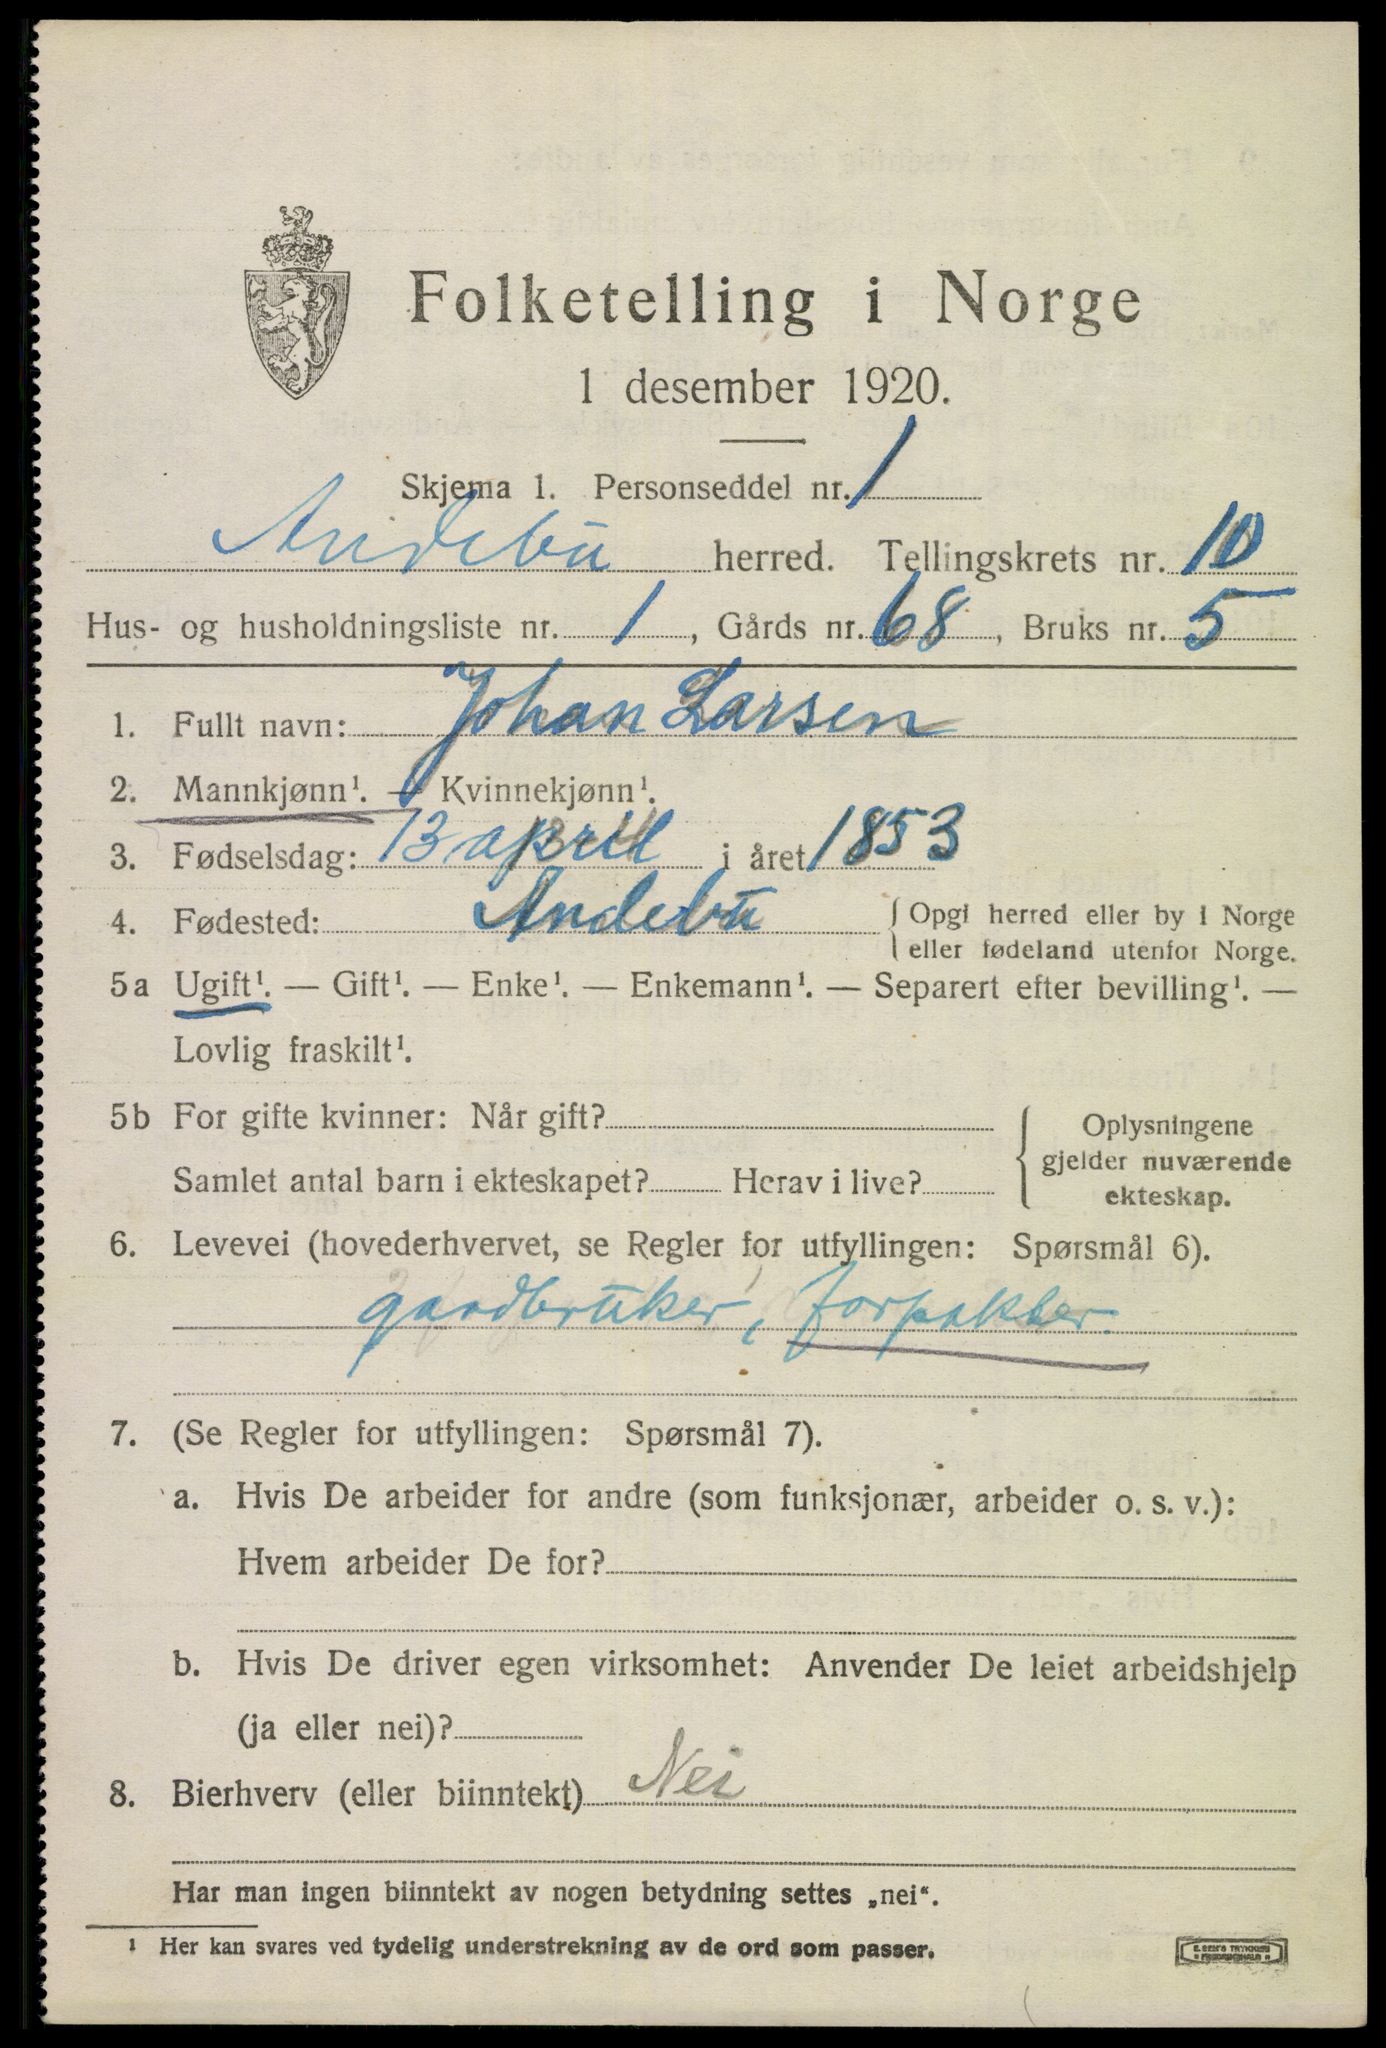 Folketelling i Norge
1 desember 1920.
Skjema 1. Personseddel nr. 1
Andebu herred. Tellingskrets nr. 10
Hus- og husholdningsliste nr. 1, Gårds nr. 68, Bruks nr. 5
1. Fullt navn: Johan Larsen
2. Mannkjønn¹. — Kvinnekjønn¹.
3. Fødselsdag: 13 april i året 1853
4. Fødested: Andebu {Opgi herred eller by i Norge
eller fødeland utenfor Norge.
5a Ugift¹. — Gift¹. — Enke¹. — Enkemann¹. — Separert efter bevilling¹. —
Lovlig fraskilt¹.
5b For gifte kvinner: Når gift?
Samlet antal barn i ekteskapet? Herav i live?
Oplysningene
gjelder nuværende
ekteskap.
6. Levevei (hovederhvervet, se Regler for utfyllingen: Spørsmål 6).
gardbruker, forpakter.
7. (Se Regler for utfyllingen: Spørsmål 7).
a. Hvis De arbeider for andre (som funksjonær, arbeider o. s. v.):
Hvem arbeider De for?
b. Hvis De driver egen virksomhet: Anvender De leiet arbeidshjelp
(ja eller nei)?
8. Bierhverv (eller biinntekt) Nei
Har man ingen biinntekt av nogen betydning settes „nei“.
¹ Her kan svares ved tydelig understrekning av de ord som passer.